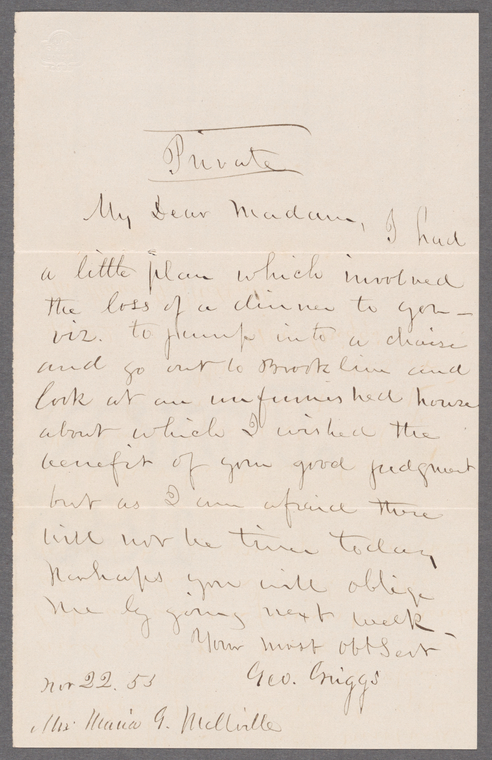 Private
My Dear Madam, I had
a little plan which involved
the loss of a dinner to you –
viz. to jump into a chaise
and go out to Brookline and
look at an unfurnished house
about which I wished the
benefit of your good judgment
but as I am afraid there
will not be time today,
Perhaps you will oblige
me by going next week –
Your most obt Sert
Geo. Griggs
Nov 22. 53
Mrs Maria G. Mellville